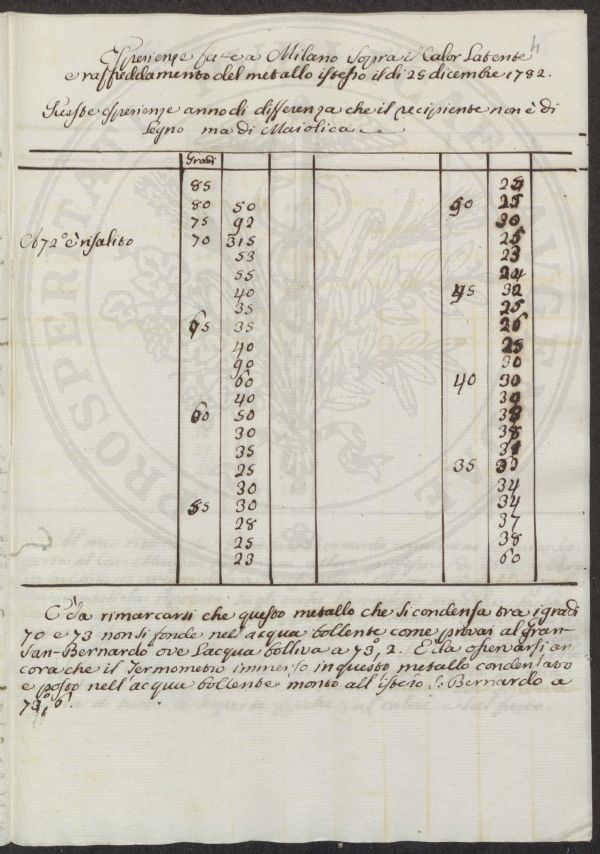 4
Esperienze fatte a Milano sopra il Calor Latente
e raffreddamento del metallo istesso il di 25 dicembre 1782.
Queste esperienze anno di differenza che il recipiente non è di
legno ma di Maiolica
Gradi
85 25
80 50 50 25
75 92 30
A 72° è risalito 70 315 25
53 23
55 24
40 45 32
35 25
65 35 26
40 25
90 30
60 40 30
40 30
60 50 38
30 38
35 31
25 35 30
30 34
55 30 34
28 37
25 38
23 60
È da rimarcarsi che questo metallo che si condensa tra i gradi
70 e 73 non si fonde nell'acqua bollente come provai al Gran-
San-Bernardo ove l'acqua bolliva a 73°, 2. È da osservarsi an
cora che il Termometro immerso in questo metallo condensato
e posto nell'acqua bollente montò all'istesso S. Bernardo a
PROSPERITATI